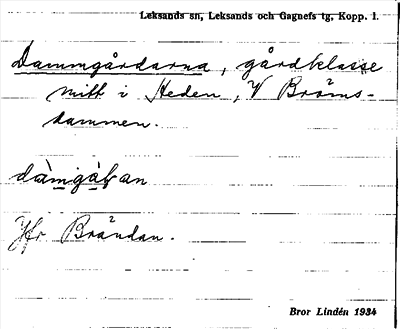 Leksands sn, Leksands och Gagnefs tg, Kopp. l.
Dammgårdarna, gårdklasse
mitt i Heden, V Bröms-
dammen.
Jfr Brändan.
Bror Lindén 1934